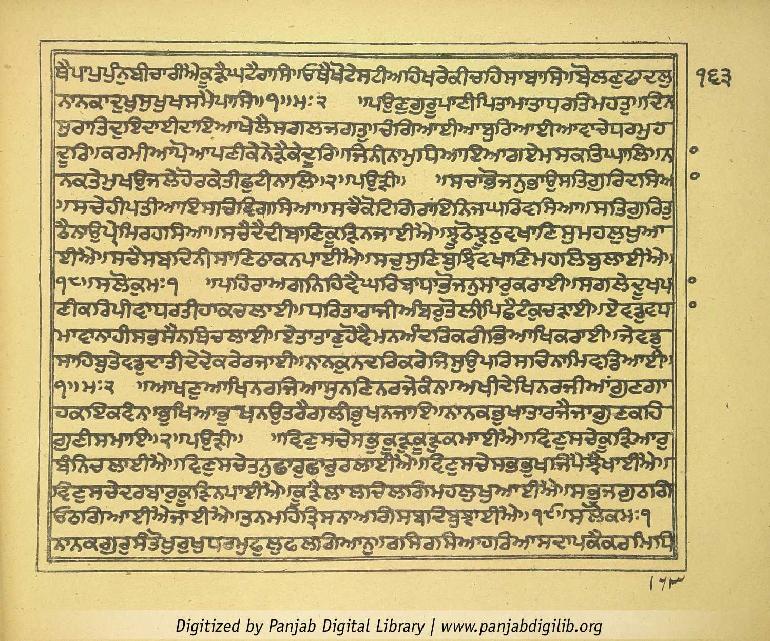 ਥੈਪਾਪੁਪੁੰਨੁਬੀਚਾਰੀਐਕੂੜੈਘਟੈਰਾਸਿ॥ਓਥੈਖੋਟੇਸਟੀਅਹਿਖਰੇਕੀਚਹਿਸਾਬਾਸਿ॥ਬੋਲਣੁਫਾਦਲੁ ੧੬੩
ਨਾਨਕਾਦੁਖੁਸੁਖੁਖਸਮੈਪਾਸਿ॥੧॥ਮਃ੨ ॥ਪਉਣੁਗੁਰੂਪਾਣੀਪਿਤਾਮਾਤਾਧਰਤਿਮਹਤੁ॥ਦਿਨ
ਸੁਰਾਤਿਦੁਇਦਾਈਦਾਇਆਖੇਲੈਸਗਲਜਗਤੁ॥ਚੰਗਿਆਈਆਬੁਰਿਆਈਆਵਾਚੇਧਰਮੁਹ
ਦੂਰਿ॥ਕਰਮੀਆਪੋਆਪਣੀਕੇਨੇੜੈਕੇਦੂਰਿ॥ਜਿਨੀਨਾਮੁਧਿਆਇਆਗਏਮਸਕਤਿਘਾਲਿ॥ਨਾ
ਨਕਤੇਮੁਖਉਜਲੇਹੋਰਕੇਤੀਛੁਟੀਨਾਲਿ॥੨॥ਪਉੜੀ॥ ॥ਸਚਾਭੋਜਨੁਭਾਉਸਤਿਗੁਰਿਦਸਿਆ
॥ਸਚੇਹੀਪਤੀਆਇਸਚਿਵਿਗਸਿਆ॥ਸਚੈਕੋਟਿਗਿਰਾਂਇਨਿਜਘਰਿਵਸਿਆ॥ਸਤਿਗੁਰਿਤੁ
ਠੈਨਾਉਪ੍ਰੇਮਿਰਹਸਿਆ॥ਸਚੈਦੈਦੀਬਾਣਿਕੂੜਿਨਜਾਈਐ॥ਝੂਠੋਝੂਠੁਵਖਾਣਿਸੁਮਹਲੁਖੁਆ
ਈਐ॥ਸਚੈਸਬਦਿਨੀਸਾਣਿਠਾਕਨਪਾਈਐ॥ਸਚੁਸੁਣਿਬੁਝਿਵਖਾਣਿਮਹਲਿਬੁਲਾਈਐ॥
੧੮॥ਸਲੋਕੁਮਃ੧ ॥ਪਹਿਰਾਅਗਨਿਹਿਵੈਘਰਿਬਾਧਾਭੋਜਨੁਸਾਰੁਕਰਾਈ॥ਸਗਲੇਦੂਖਪਾ
ਣੀਕਰਿਪੀਵਾਧਰਤੀਹਾਕਚਲਾਈ॥ਧਰਿਤਾਰਾਜੀਅੰਬਰੁਤੋਲੀਪਿਛੈਟੰਕੁਚੜਾਈ॥ਏਵਡੁਵਧਾ
ਮਾਵਾਨਾਹੀਸਭਸੈਨਥਿਚਲਾਈ॥ਏਤਾਤਾਣੁਹੋਵੈਮਨਅੰਦਰਿਕਰੀਭਿਆਖਿਕਰਾਈ॥ਜੇਵਡੁ
ਸਾਹਿਬੁਤੇਵਡਦਾਤੀਦੇਦੇਕਰੇਰਜਾਈ॥ਨਾਨਕਨਦਰਿਕਰੇਜਿਸੁਉਪਰਿਸਚਿਨਾਮਿਵਡਿਆਈ॥
੧॥ਮਃ੨ ॥ਆਖਣੁਆਖਿਨਰਜਿਆਸੁਨਣਿਨਰਜੇਕੰਨ॥ਅਖੀਦੇਖਿਨਰਜੀਆਂਗੁਣਗਾ
ਹਕਇਕਵੰਨ॥ਭੁਖਿਆਭੁਖਨਉਤਰੈਗਲੀਭੁਖਨਜਾਇ॥ਨਾਨਕਭੁਖਾਤਾਰਜੈਜਾਗੁਣਕਹਿ
ਗੁਣੀਸਮਾਇ॥੨॥ਪਉੜੀ॥ ॥ਵਿਣੁਸਚੇਸਭੁਕੂੜੁਕੂੜੁਕਮਾਈਐ॥ਵਿਣੁਸਚੇਕੂੜਿਆਰੁ
ਬੰਨਿਚਲਾਈਐ॥ਵਿਣੁਸਚੇਤਨੁਛਾਰੁਛਾਰੁਰਲਾਈਐ॥ਵਿਣੁਸਚੇਸਭਭੁਖਜਿਪੈਝੈਖਾਈਐ॥
ਵਿਣੁਸਚੇਦਰਬਾਰੁਕੂੜਿਨਪਾਈਐ॥ਕੂੜੈਲਾਲਚਿਲਗਿਮਹਲੁਖੁਆਈਐ॥ਸਭੁਜਗੁਠਗਿ
ਓਠਗਿਆਈਐਜਾਈਐ॥ਤਨਮਹਿਤ੍ਰਿਸਨਾਅਗਿਸਬਦਿਬੁਝਾਈਐ॥੧੯॥ਸਲੋਕਮਃ੧
ਨਾਨਕਗੁਰੁਸੰਤੋਖੁਰੁਖੁਧਰਮੁਫੁਲੁਫਲਗਿਆਨੁ॥ਰਸਿਰਸਿਆਹਰਿਆਸਦਾਪਕੈਕਰਮਿਧਿ
Digitized by Panjab Digital Library | www.panjabdigilib.org